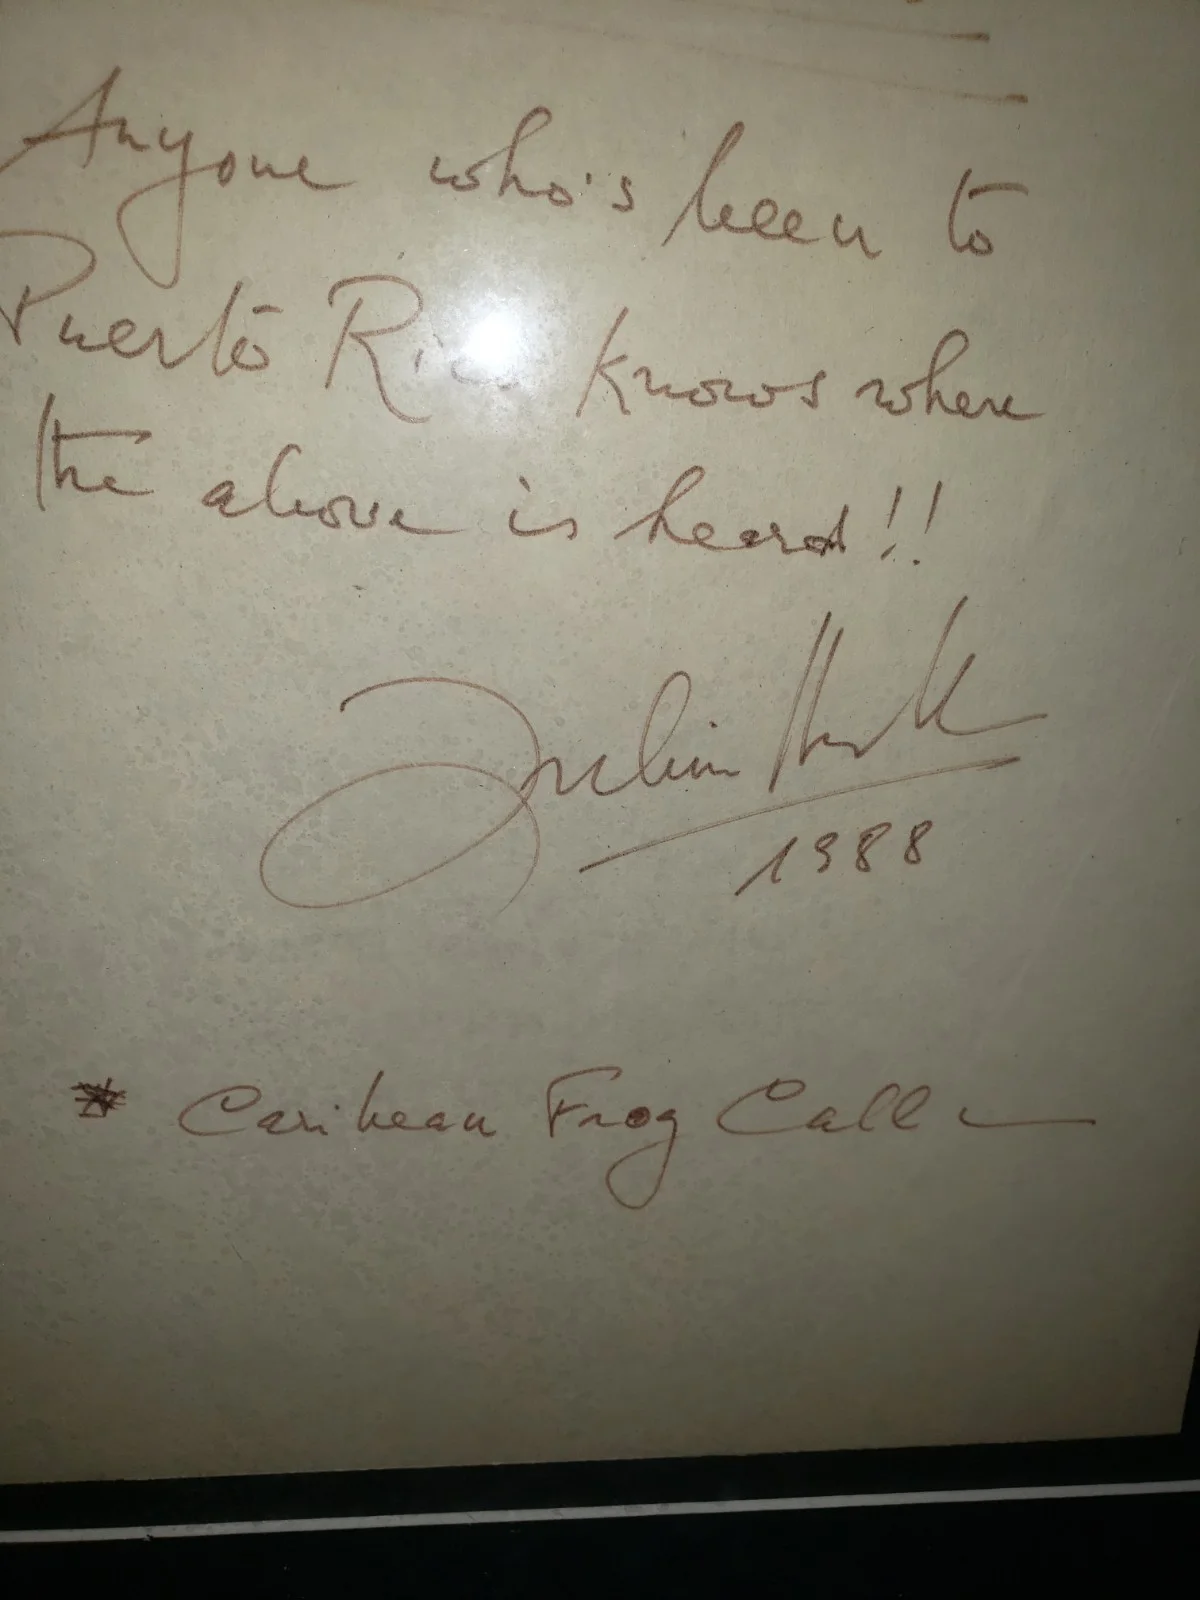 Anyone who's been to
Puerto Rico knows where
the above is heard!!
1988
* Caribean Frog Call